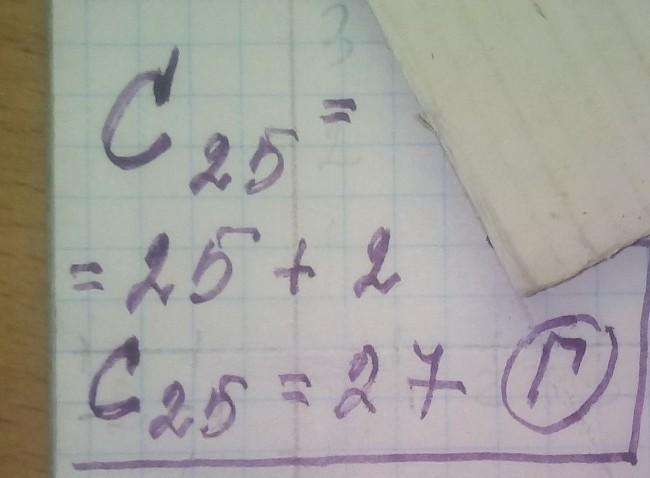 C₂₅ =
= 25 + 2
C₂₅ = 27 Г